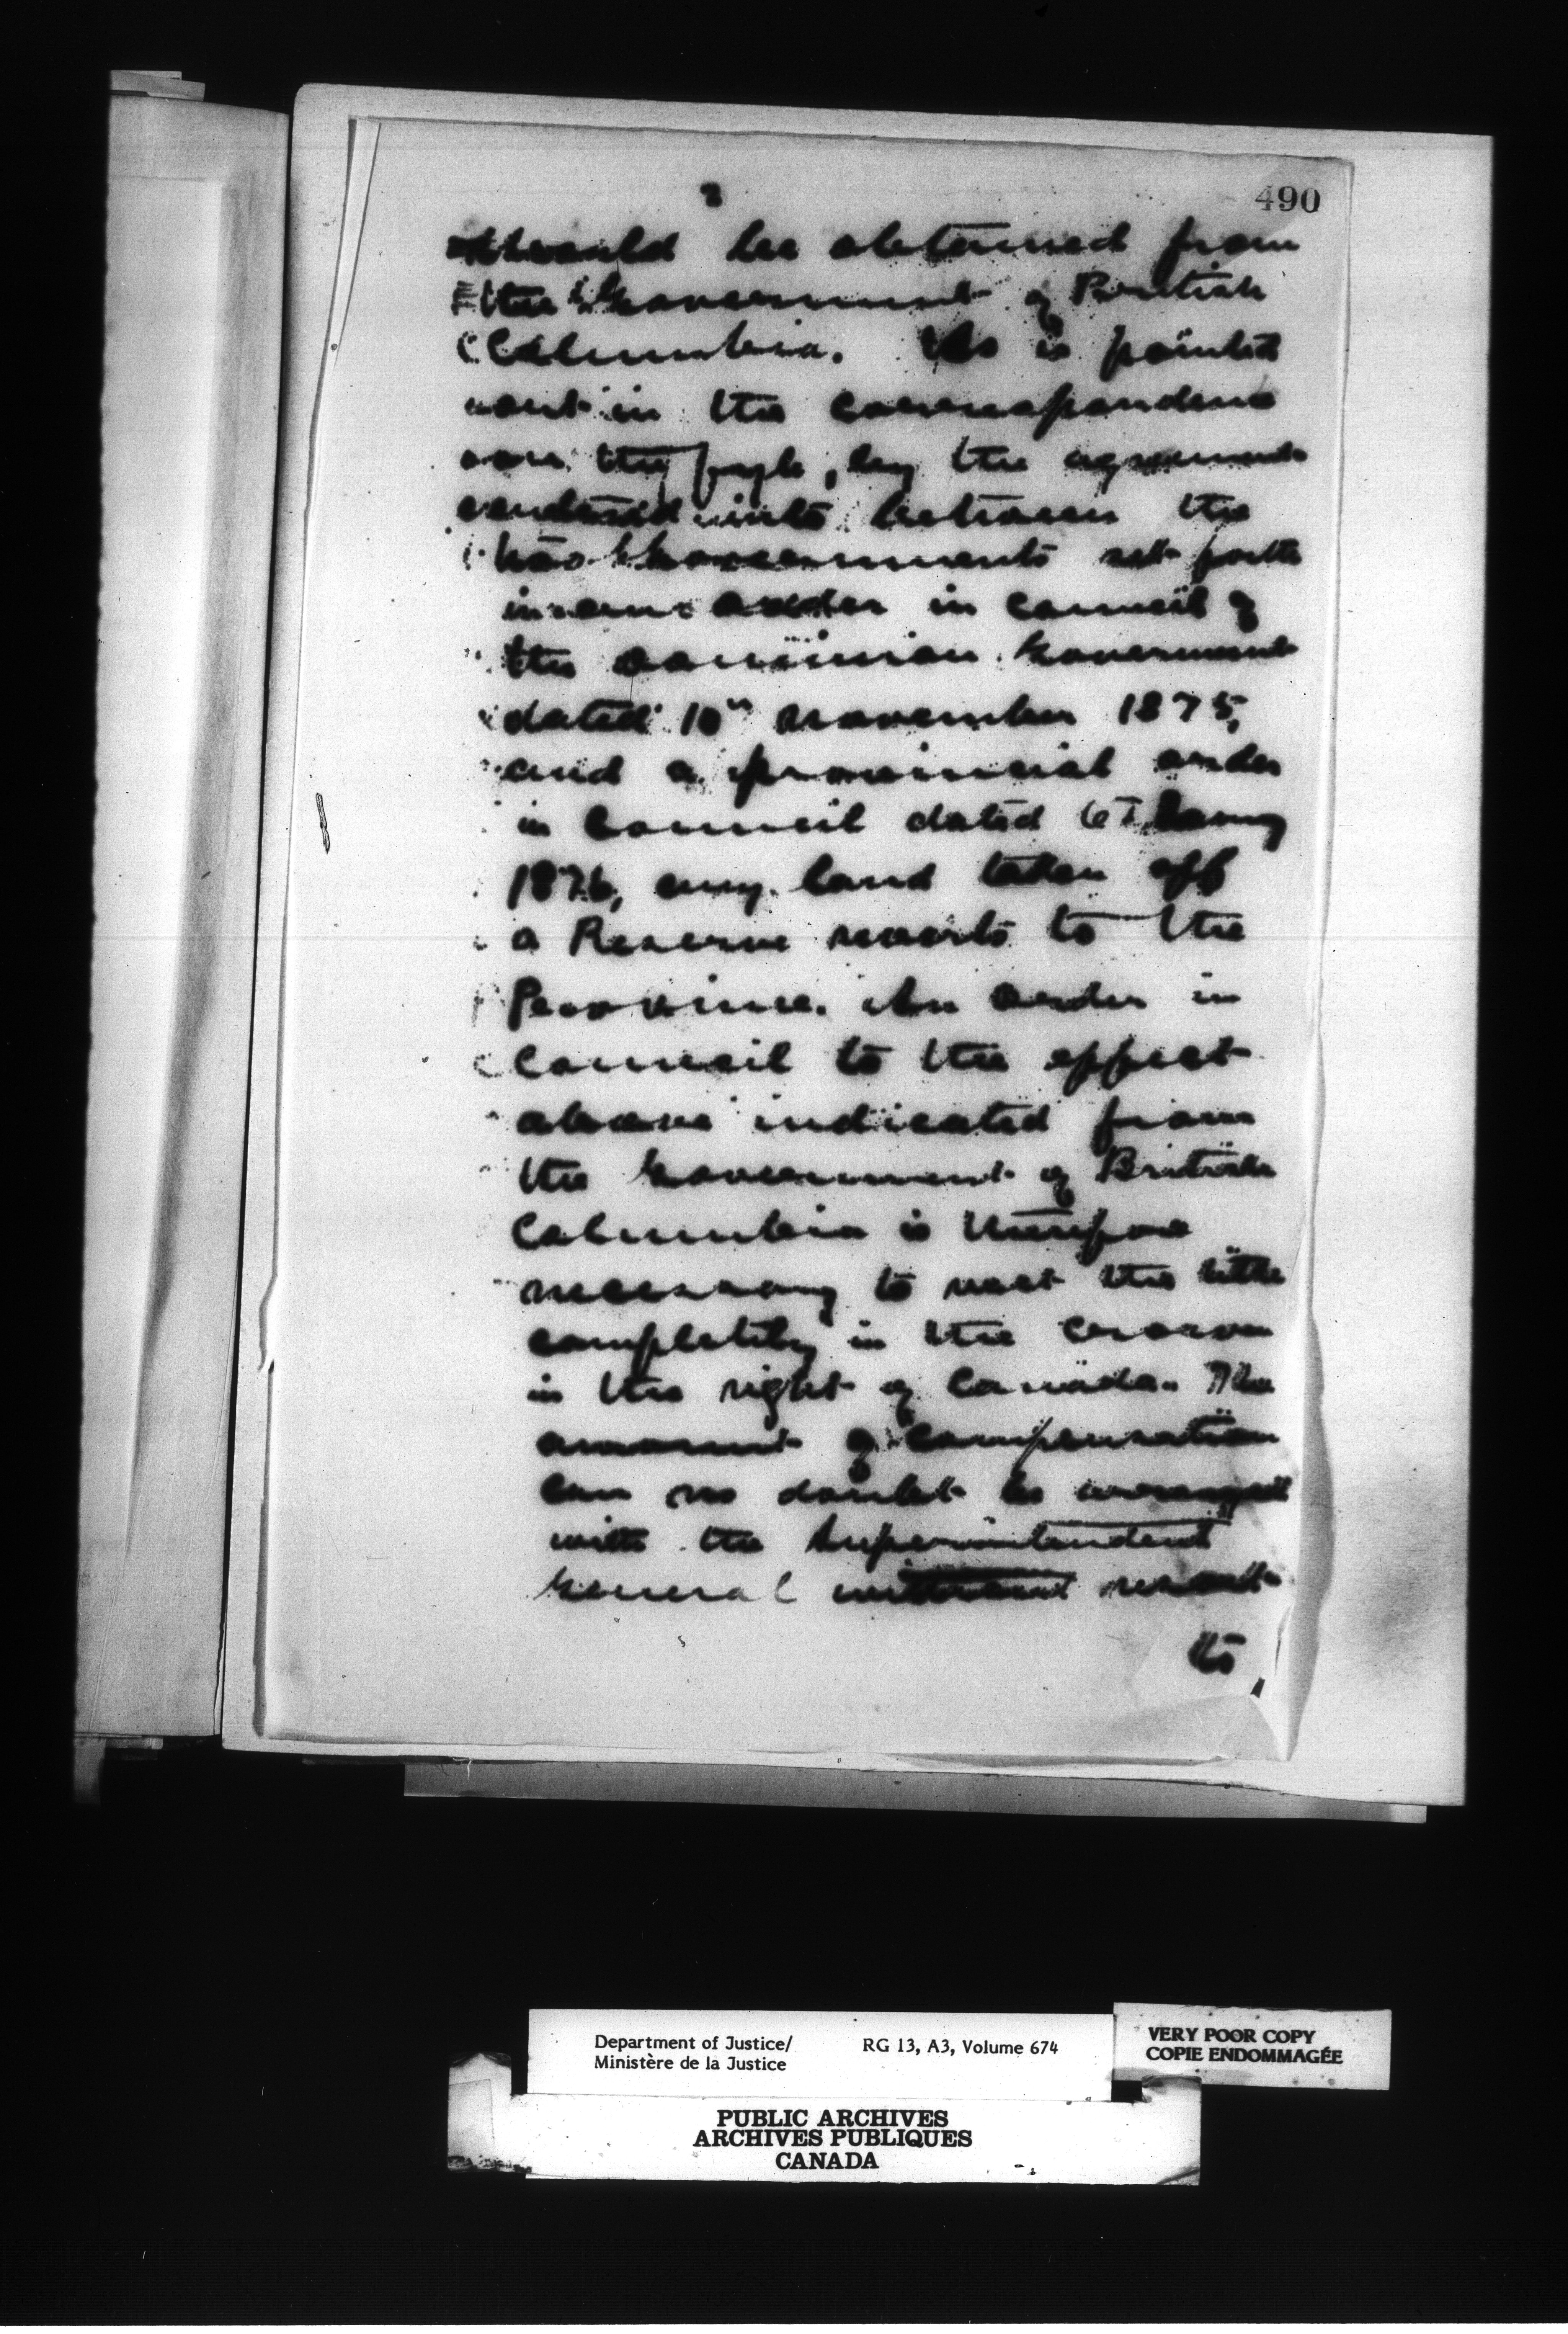 490
2
should be obtained from
the Government of British
Columbia. As is pointed
out in the correspondence
on the fyle, by the agreement
entered into between the
two Governments set forth
in an order in council of
the dominion Government
dated 10th november 1875,
and a provincial order
in Council dated 6
1876, any land taken off
a Reserve reverts to the
Province. An order in
Council to the effect
above indicated from
the Government of British
Columbia is therefore
necessary to vest the title
completely in the crown
in the right of Canada. The
amount of compensation
can no doubt be arranged
with the Superintendent
General without resort
to
Department of Justice/
Ministère de la Justice
RG 13, A3, Volume 674
VERY POOR COPY
COPIE ENDOMMAGÉE
PUBLIC ARCHIVES
ARCHIVES PUBLIQUES
CANADA